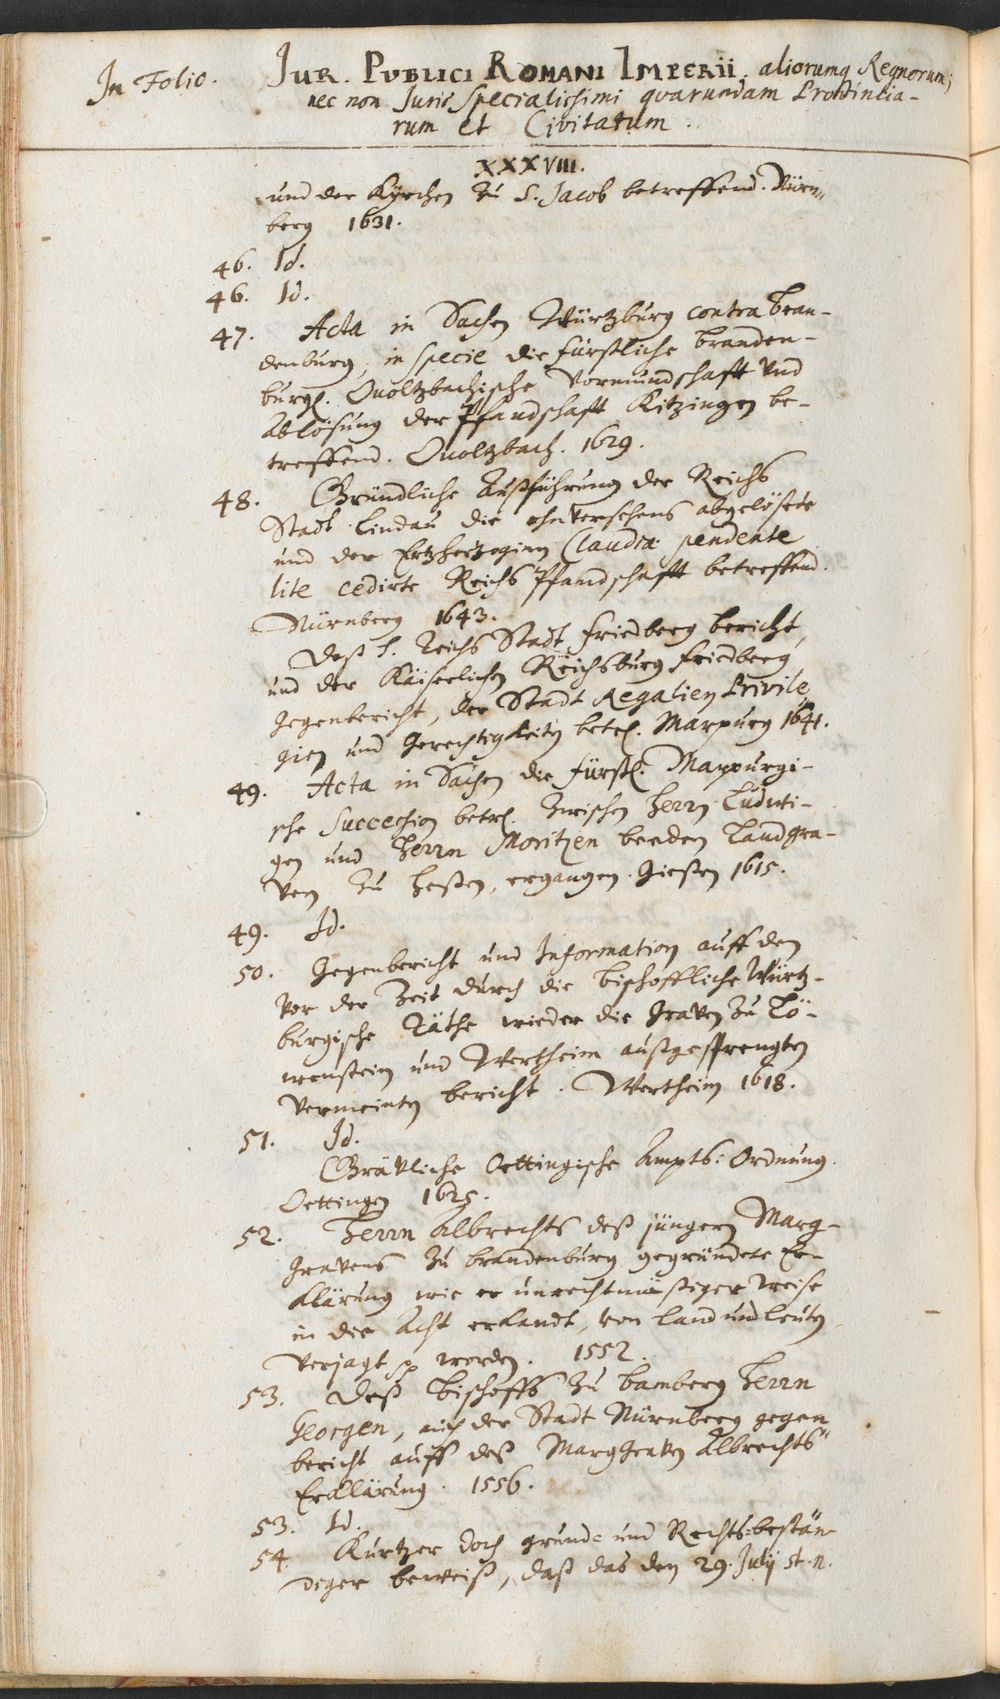 In Folio.
Jur. Publici Romani Imperii, aliorumq Regnorum,
nec non Juris Specialissimi quarundam Provincia-
rum et Civitatum.
XXXVIII.
und der Kyrchen zu S. Jacob betreffend. Nürn„
berg 1631.
46. Id.
46. Id.
47. Acta in Sachen Würtzburg contra Bran-
denburg, in specie die fürstliche branden-
burgl. Onoltzbachische Vormundschafft vnd
Ablösung der Pfandschafft Kitzingen be-
treffend. Onoltzbach. 1629.
48. Gründliche Außführung der Reichs
Stadt Lindau die ohnversehens abgelösete
und der Ertzhertzoginn Claudiæ pendente
lite cedirte Reichs Pfandschafft betreffend.
Nürnberg 1643.
Deß H. Reichs Stadt Friedberg bericht,
und der Käiserlichen Reichsburg Friedberg
gegenbericht, der Stadt Regalien Privile„
gien und Gerechtigkeiten betrl. Marpurg 1641.
49. Acta in Sachen die fürstl. Marpurgi-
sche Succession betrl. zwischen Herrn Ludwi-
gen und Herrn Moritzen beeden Landgra-
ven zu Heßen, ergangen. Gießen 1615.
49. Id.
50. Gegenbericht und Information auff den
vor der Zeit durch die bischoffliche Würtz-
burgische Räthe wieder die Graven zu Lö-
wenstein und Wertheim außgesprengten
vermeinten bericht. Wertheim 1618.
51. Id.
Grävliche Oettingische Ampts: Ordnung.
Oettingen 1625.
52. Herrn Albrechts deß jüngern Marg-
gravens zu brandenburg gegründete Er-
klärung wie er unrechtmäßiger weise
in die Acht erkandt, von land und leuten
verjagt worden. 1552.
53. Deß Bischoffs zu bamberg Herrn
Georgen, auch der Stadt Nürnberg gegen
bericht auff deß Marggraven Albrechts
Erklärung. 1556.
53. Id.
54. Kurtzer doch grund= und Rechts=bestän-
diger beweiß, daß das den 29. Julij st. n.